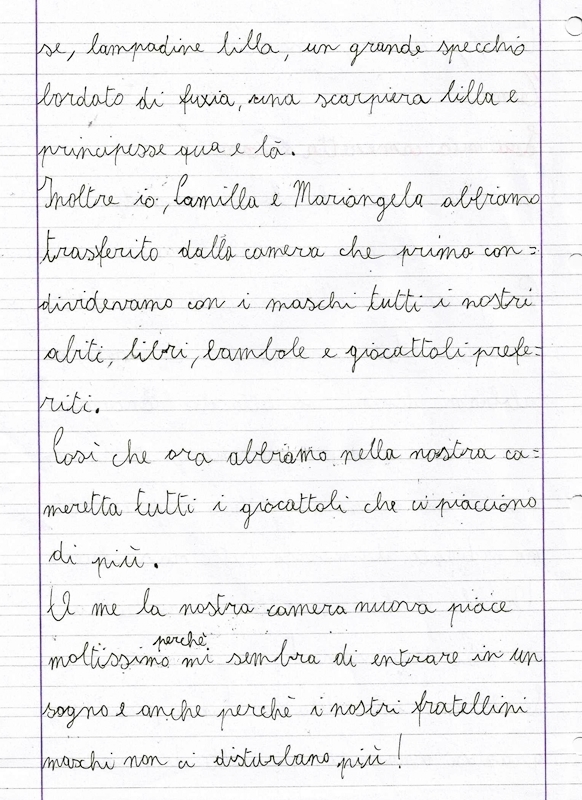 se, lampadine lilla, un grande specchio
bordato di fuxia, una scarpiera lilla e
principesse qua e là.
Inoltre io, Camilla e Mariangela abbiamo
trasferito dalla camera che prima con=
dividevamo con i maschi tutti i nostri
abiti, libri, bambole e giocattoli prefe=
riti.
Così che ora abbiamo nella nostra ca=
meretta tutti i giocattoli che ci piacciono
di più.
A me la nostra camera nuova piace
moltissimo perchè mi sembra di entrare in un
sogno e anche perchè i nostri fratellini
maschi non ci disturbano più!